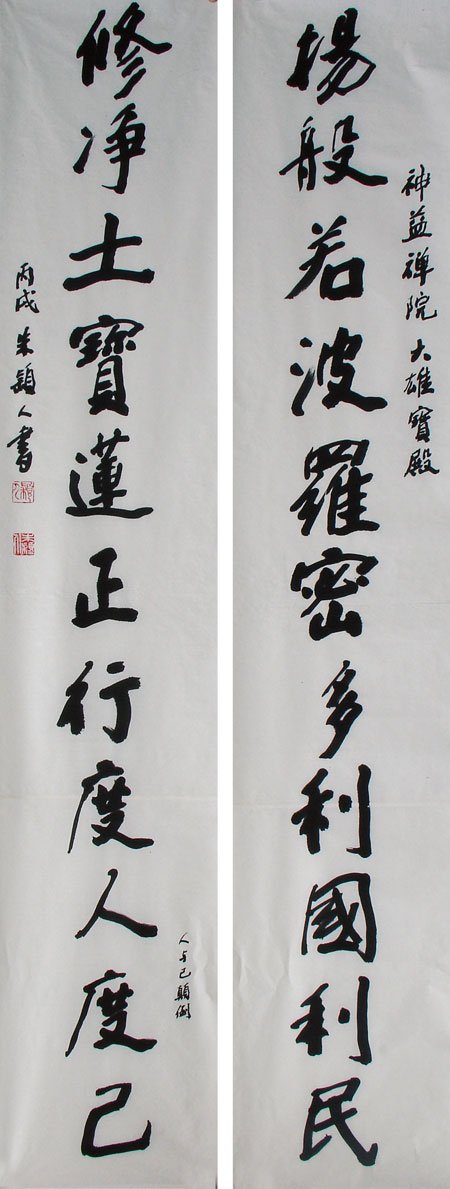 神益禪院 大雄寶殿
揚般若波羅密多利國利民
修净土寶蓮正行度人度己
人与己顛倒
丙戌 朱穎人書